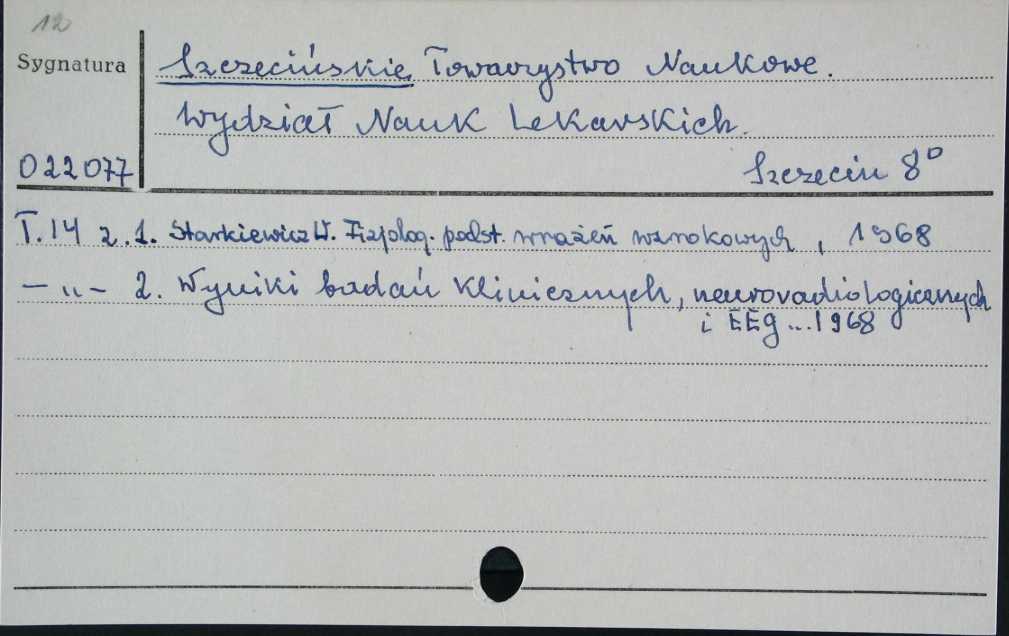 12
Sygnatura
Szczecińskie Towarzystwo Naukowe.
Wydział Nauk Lekarskich.
022077
Szczecin 8°
T.14 z.1. Starkiewicz W. Fizjolog. podst. wrażeń wzrokowych, 1968
— „ — 2. Wyniki badań klinicznych, neuroradiologicznych
i EEG ... 1968